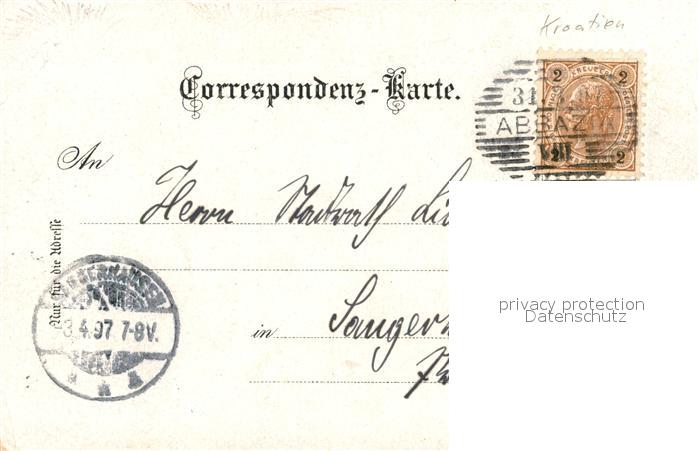 Kroatien
2 KREUZER 2
Correspondenz-Karte.
31
ABBAZ
VIII
2 2
An
Herrn Stadtrath
Nur für die Adresse
privacy protection
Datenschutz
3.4.97 7-8V.
in Sanger